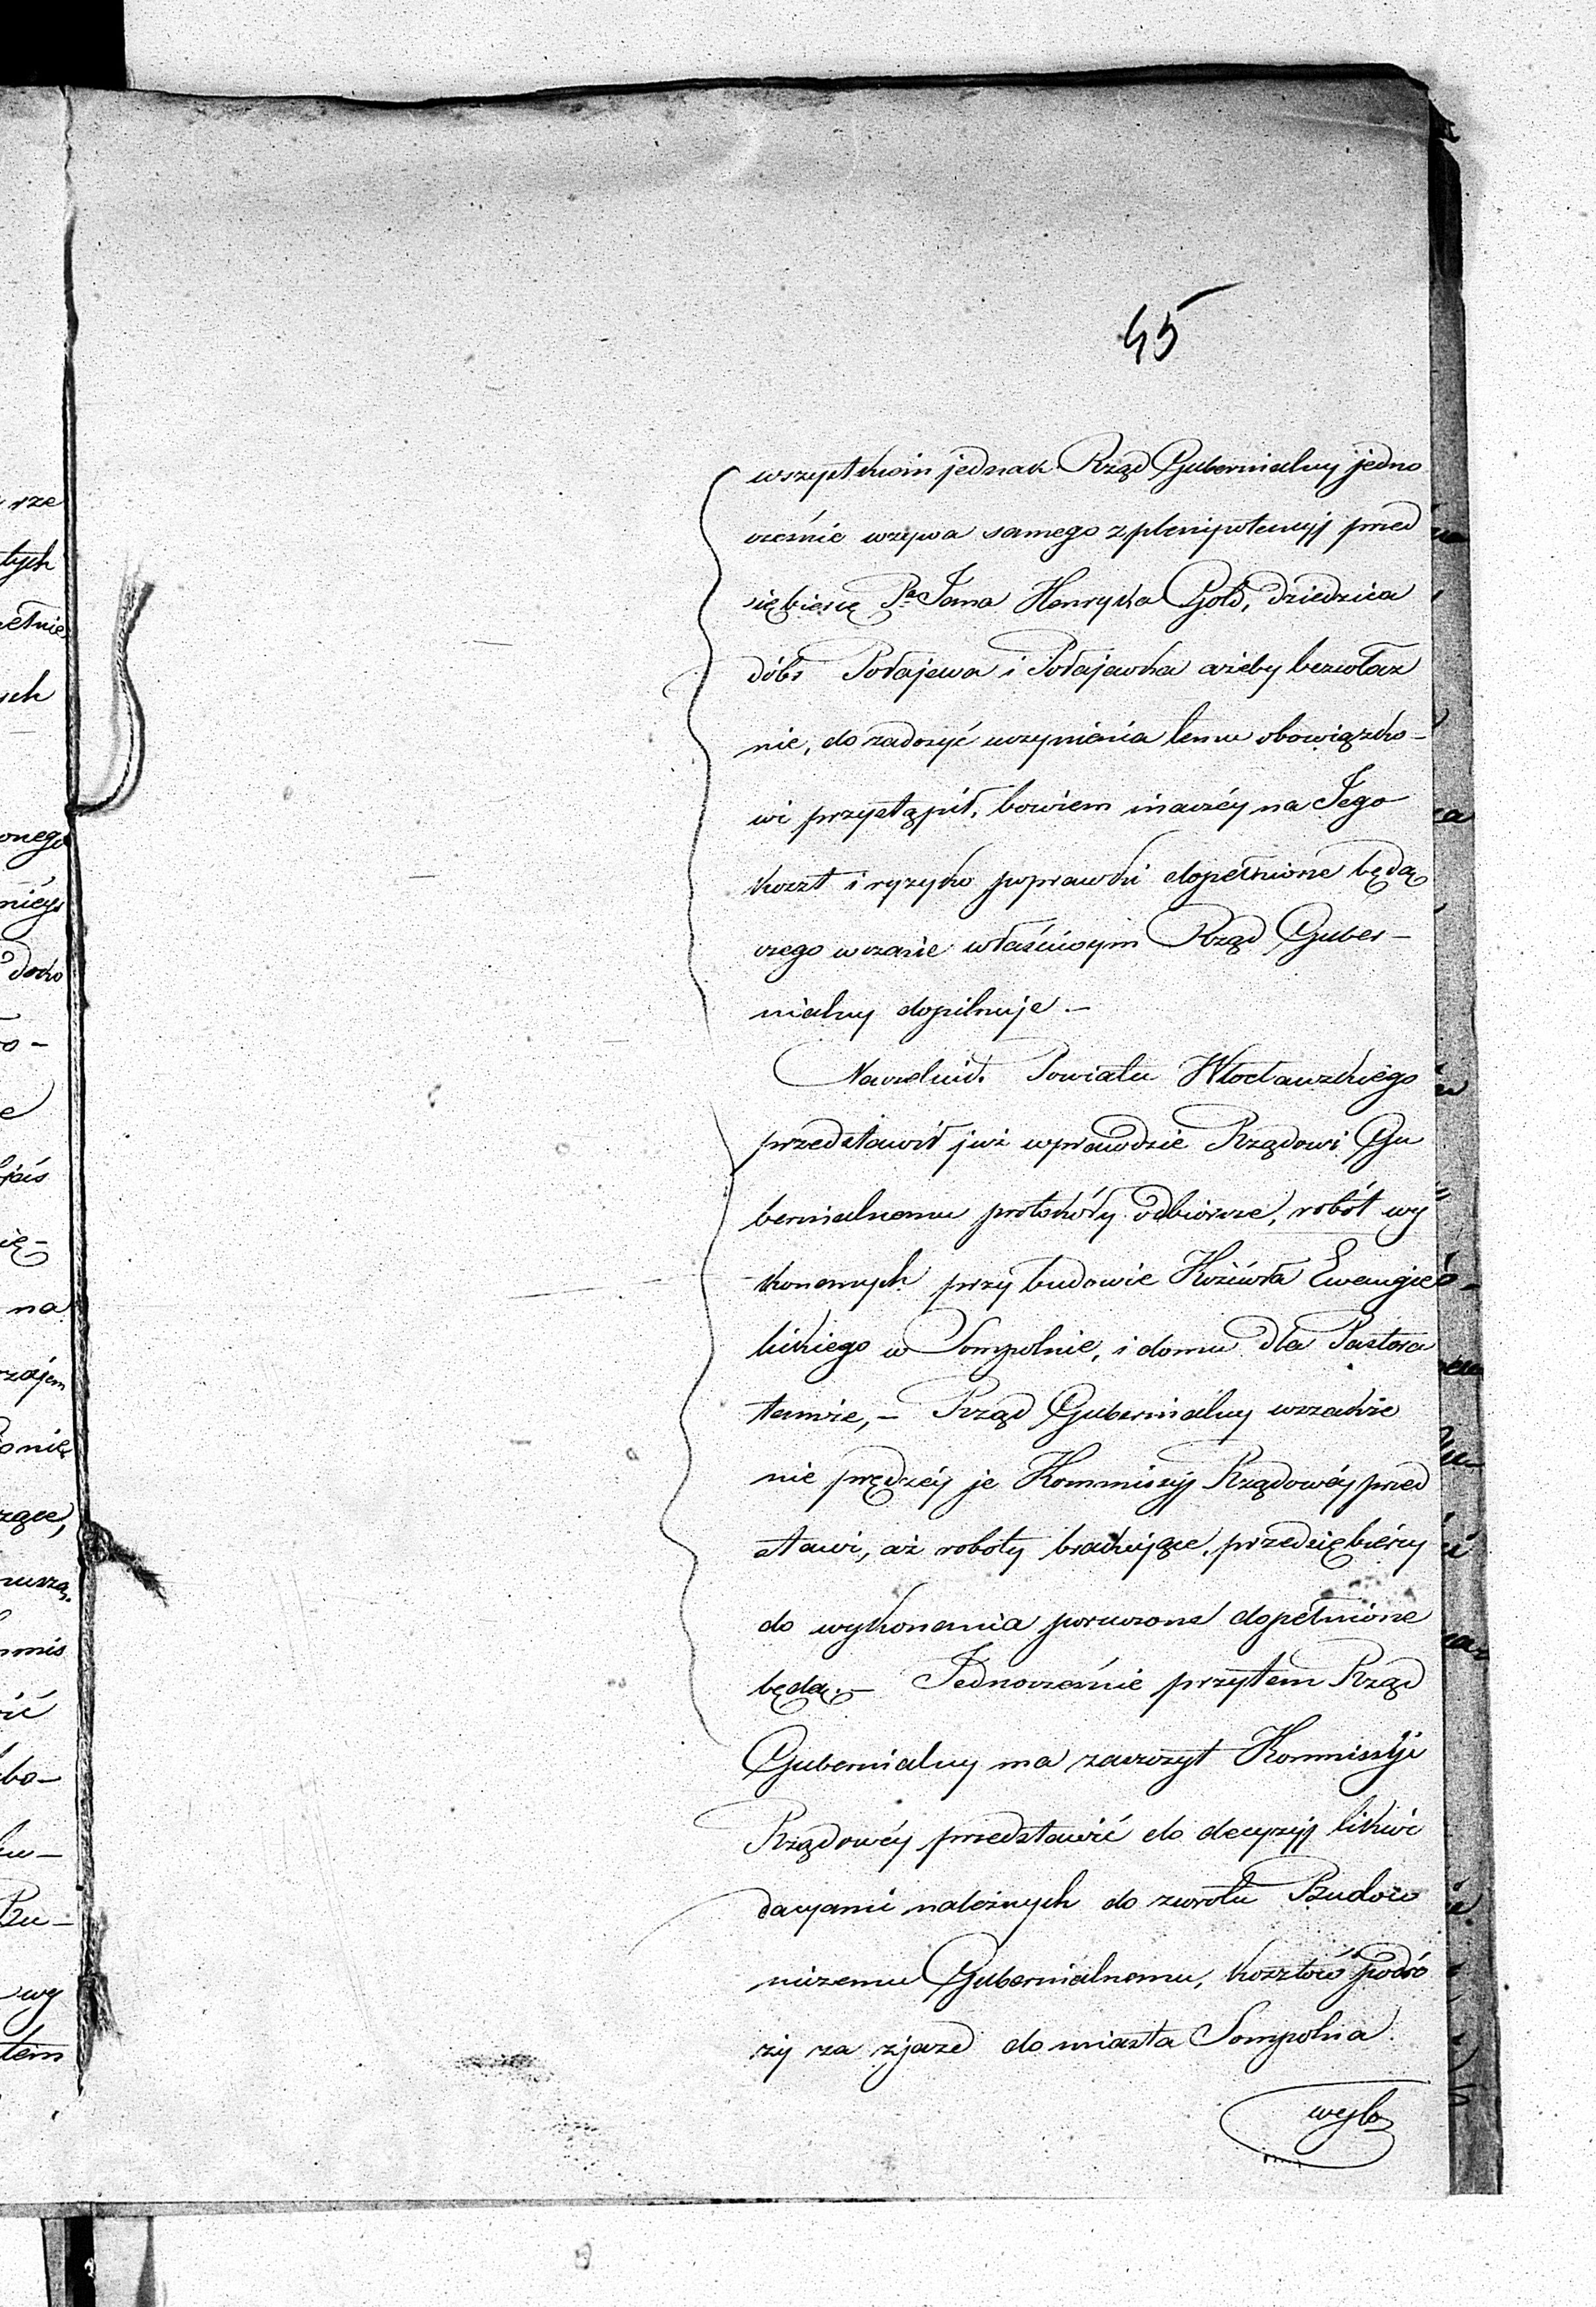 45
wszystkiem jednak Rząd Gubernialny jedno
cześnie wzywa samego z plenipotencyj przed
siębiercę Pa Jana Henryka Gold, dziedzica
dóbr Połajewa i Połajewka ażeby bezwłocz
nie, do zadosyć uczynienia temu obowiązko-
wi przystąpił, bowiem inaczéy na Jego
koszt i ryzyko poprawki dopełnione będą
czego w czasie właściwym Rząd Guber-
nialny dopilnuje.-
Naczelnik Powiatu Włocławskiego
przedstawił już wprawdzie Rządowi Gu
bernialnemu protokóły odbiorcze, robót wy
konanych przy budowie Kościoła Ewangie
lickiego w Sompolnie, i domu dla Pastora
tamże,- Rząd Gubernialny wszakże
nie prędzéy je Kommissyj Rządowéy przed
stawi, aż roboty brakujące, przedsiębiércy
do wykonania poruczone dopełnione
będą.- Jednocześnie przytem Rząd
Gubernialny ma zaszczyt Kommissyi
Rządowéy przedstawić do decyzyj likwi
dacyami należnych do zwrotu Budow
niczemu Gubernialnemu, kosztów podró
ży za zjazd do miasta Sompolna